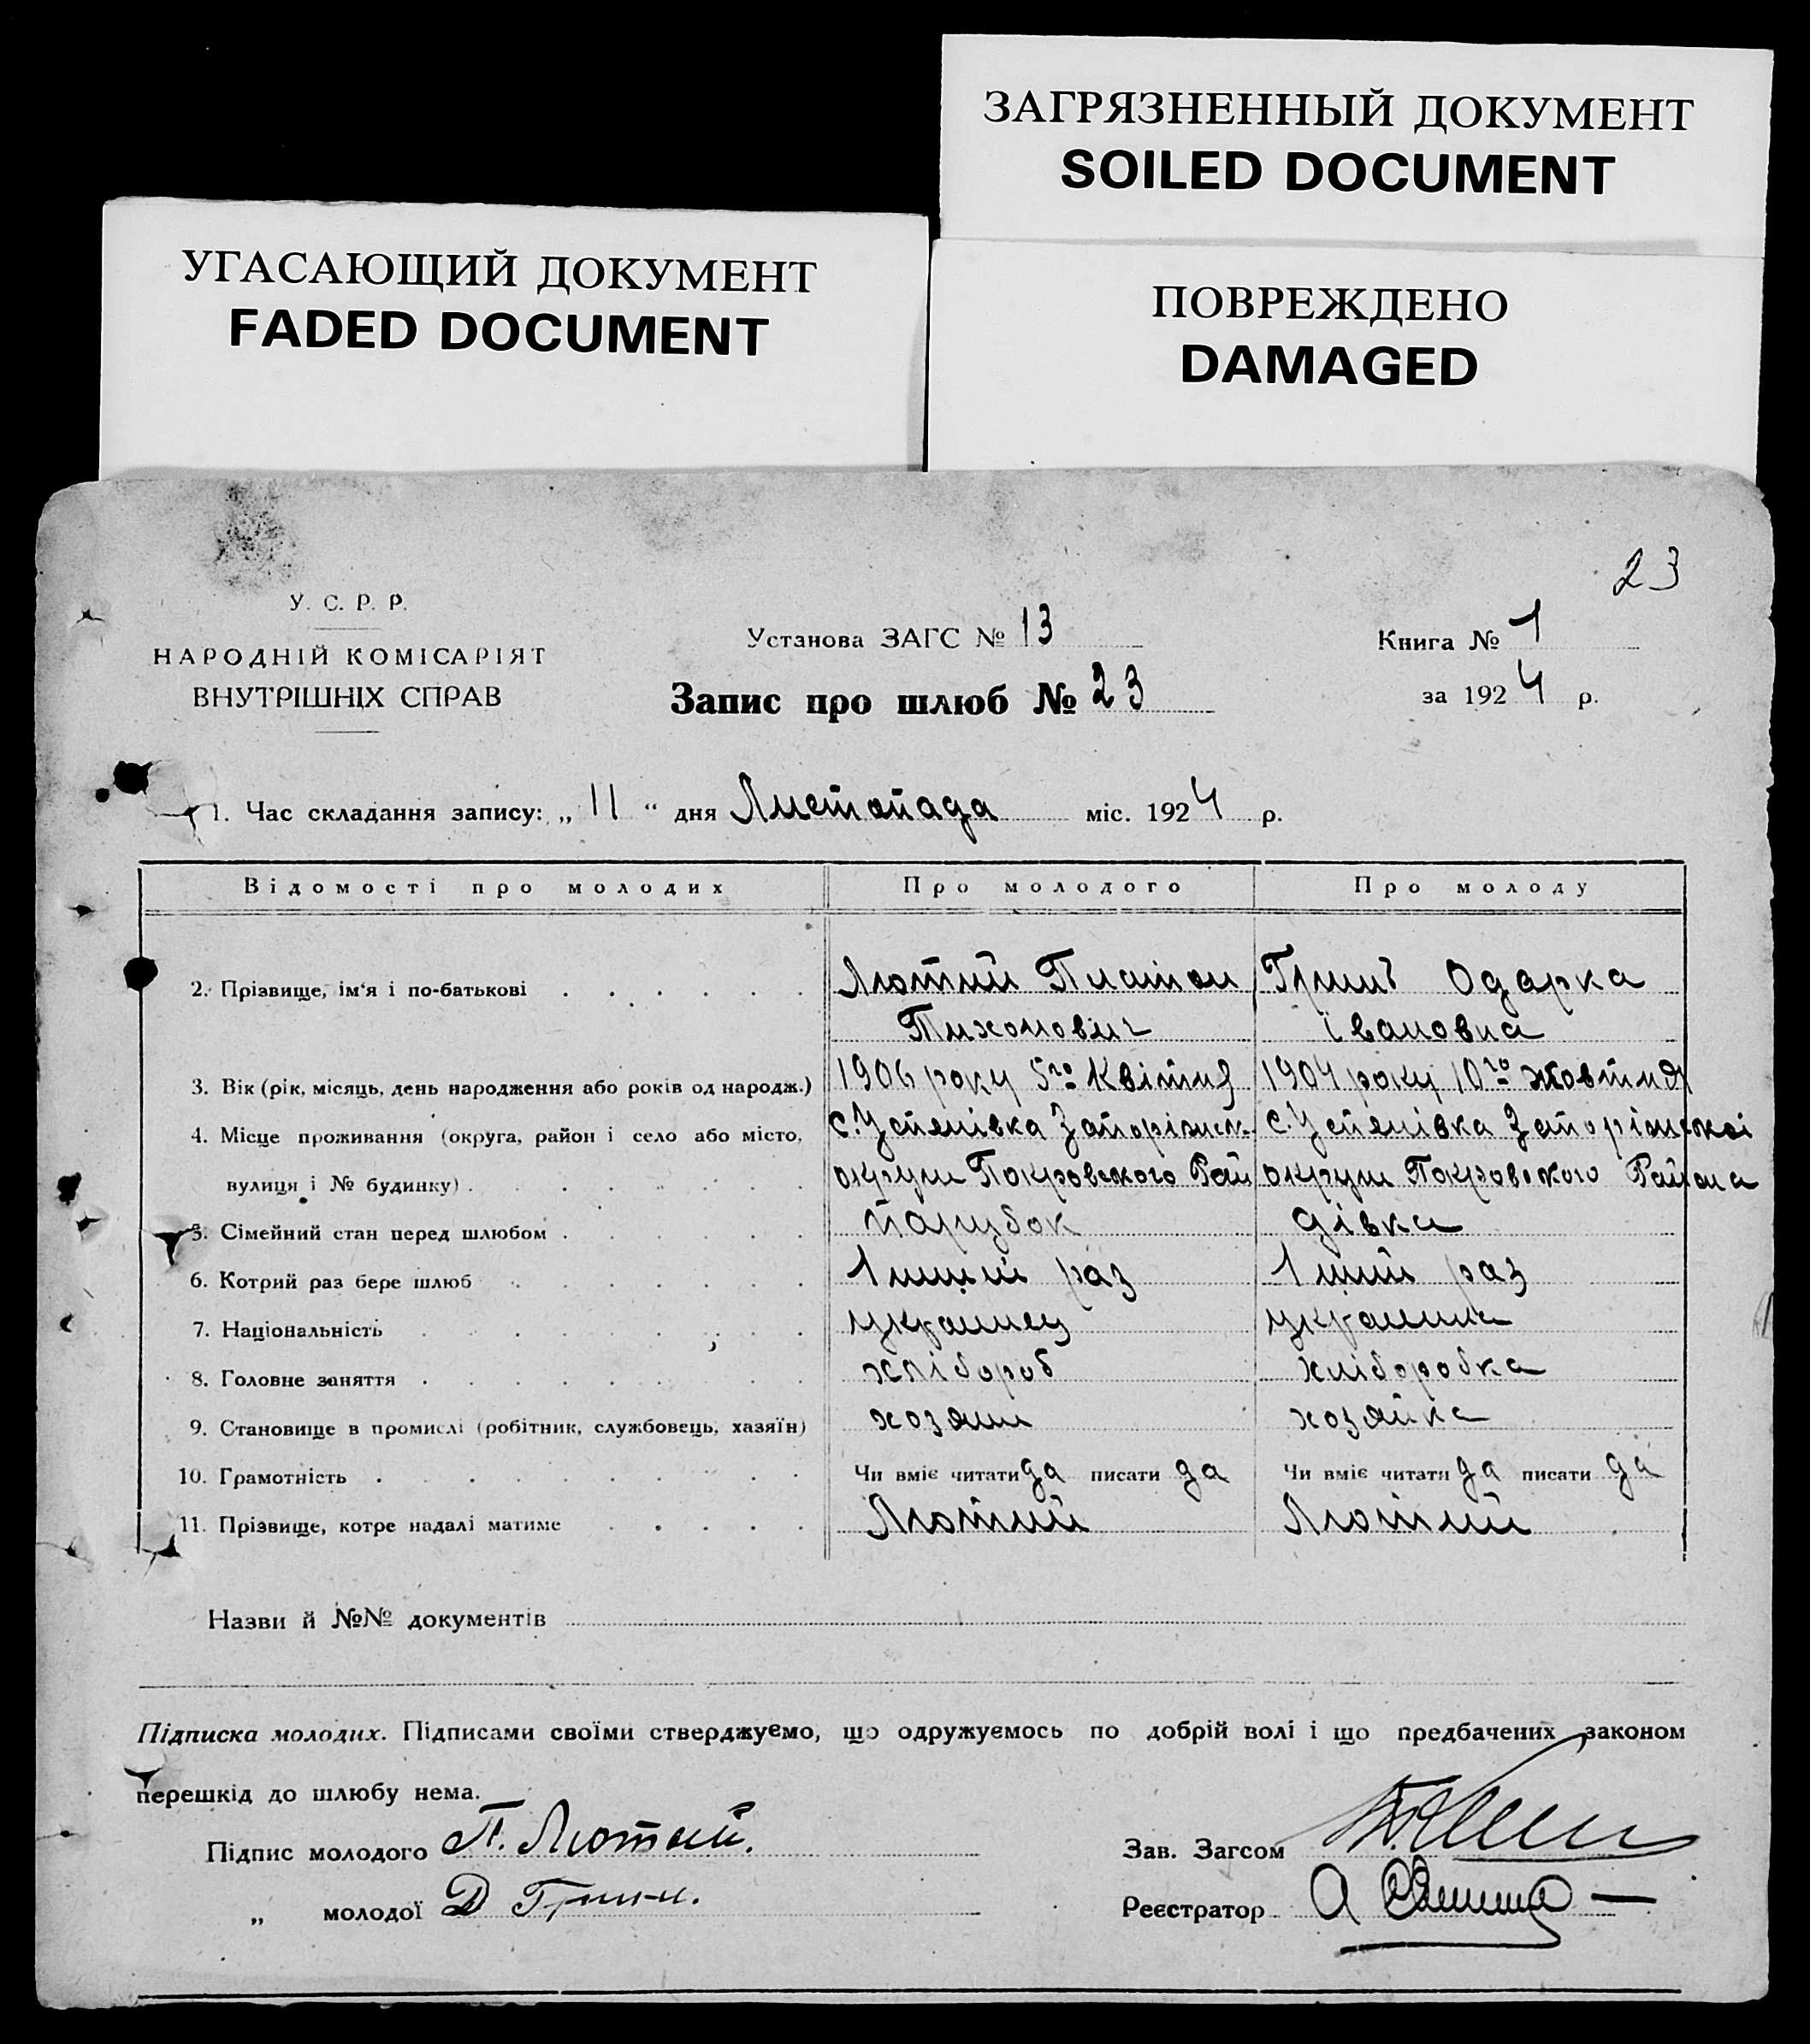 ЗАГРЯЗНЕННЫЙ ДОКУМЕНТ
SOILED DOCUMENT
УГАСАЮЩИЙ ДОКУМЕНТ
FADED DOCUMENT
ПОВРЕЖДЕНО
DAMAGED
23
У. С. Р. Р.
НАРОДНІЙ КОМІСАРІЯТ
ВНУТРІШНІХ СПРАВ
Установа ЗАГС № 13
Книга № 1
Запис про шлюб № 23
за 1924 р.
1. Час складання запису: „ 11 “ дня Листопада міс. 1924 р.
Відомості про молодих Про молодого Про молоду
2. Прізвище, ім'я і по-батькові Лютий Платон Гринь Одарка
Тихонович Івановна
3. Вік (рік, місяць, день народження або років од народж.) 1906 року 5го Квітня 1904 року 10го жовтня
4. Місце проживання (округа, район і село або місто, с. Успенівка Запоріжск. с. Успенівка Запоріжскоі
вулиця і № будинку) округи Покровского Рай округи Покровского Района
5. Сімейний стан перед шлюбом парубок дівка
6. Котрий раз бере шлюб 1 ший раз 1 ший раз
7. Національність украинец украинка
8. Головне заняття хлібороб хліборобка
9. Становище в промислі (робітник, службовець, хазяїн) хозяин хозяйка
10. Грамотність Чи вміє читати да писати да Чи вміє читати да писати да
11. Прізвище, котре надалі матиме Лютий Лютий
Назви й №№ документів
Підписка молодих. Підписами своїми стверджуємо, що одружуємось по добрій волі і що предбачених законом
перешкід до шлюбу нема.
Підпис молодого П. Лютый.
Зав. Загсом
„ молодої Д Гринь.
Реєстратор А